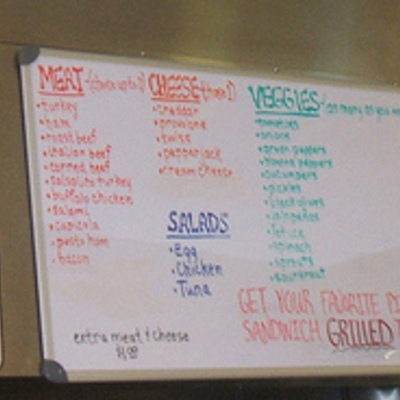 MEAT
• turkey
• ham
• roast beef
• italian beef
• corned beef
• salsalito turkey
• buffalo chicken
• salami
• capicola
• pesto ham
• bacon
CHEESE (choose 1)
• cheddar
• provlone
• swiss
• pepperjack
• cream cheese
SALADS
• Egg
• Chicken
• Tuna
extra meat & cheese
VEGGIES (as many as you
• tomatoes
• onions
• green peppers
• banana peppers
• cucumbers
• pickles
• black olives
• jalapeños
• lettuce
• spinach
• sprouts
• sauerkraut
GET YOUR FAVORITE
SANDWICH GRILLED